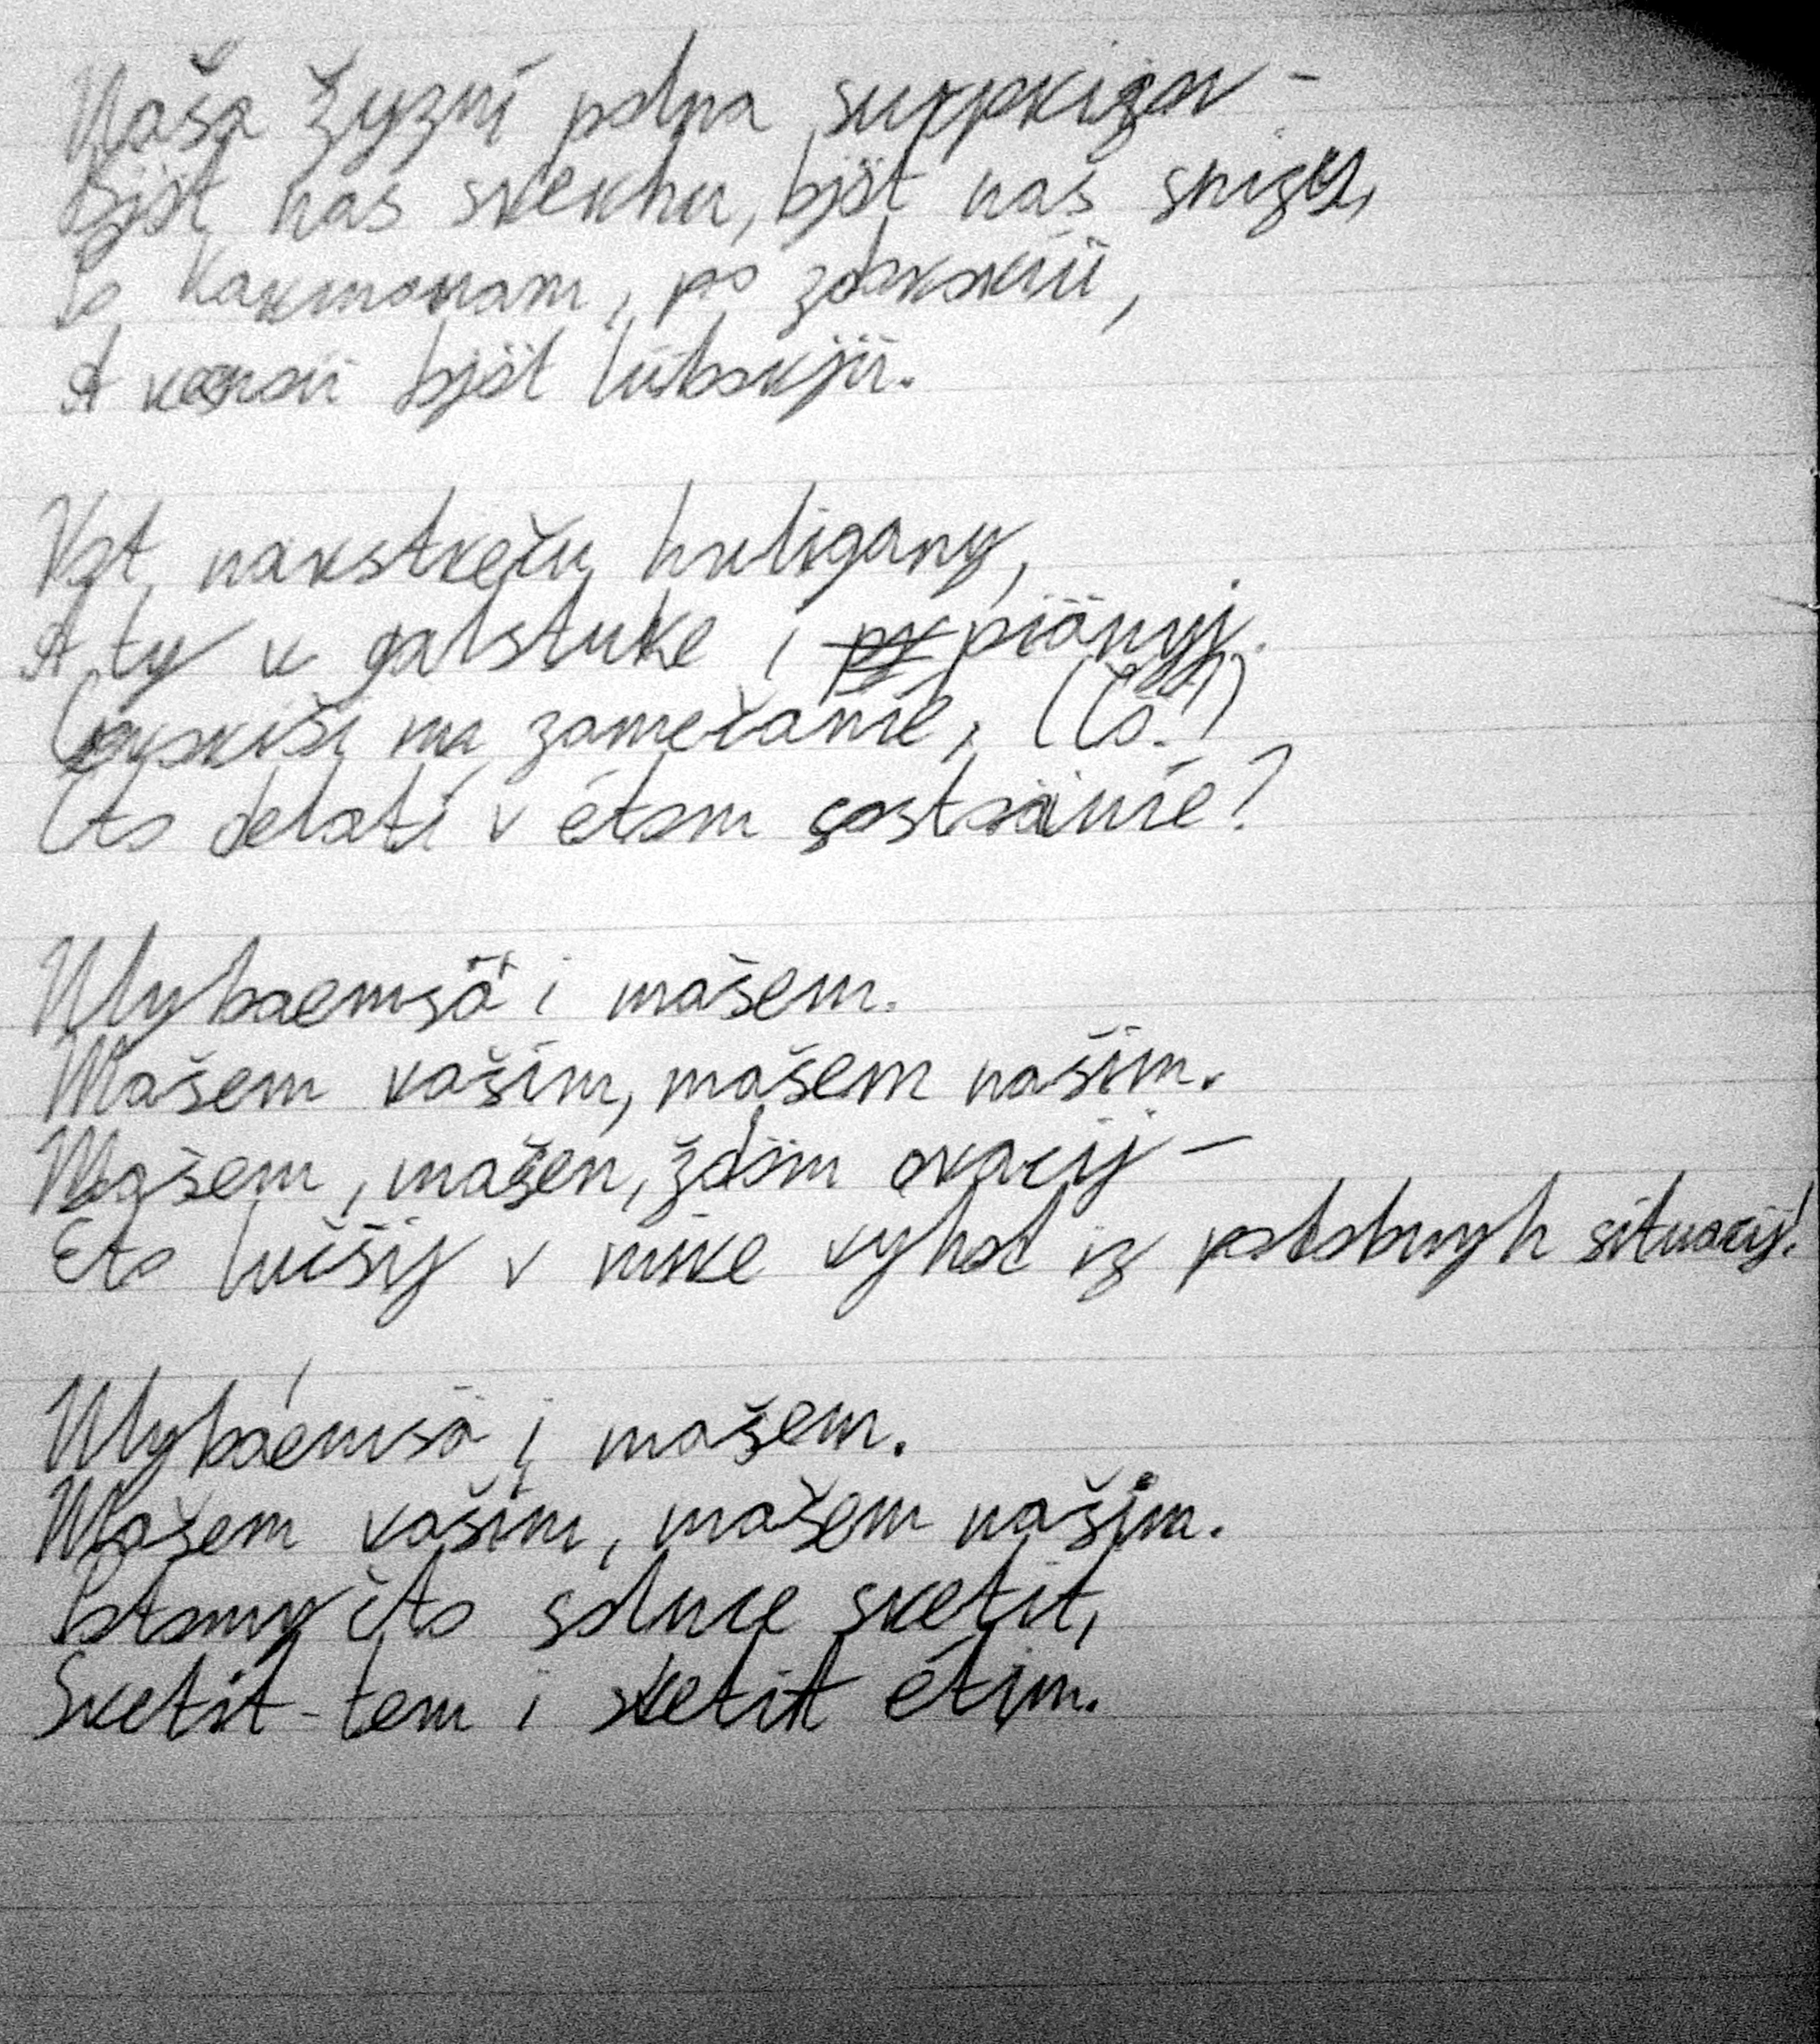 Naša žyzní polna surprizov –
Bjöt nas sverhu, bjöt nas snizu,
Po karmonam, po zdorovíü,
A vesnoü bjöt lübovjü.
Vot navstreču huligany,
A ty v galstuke i piänyj.
Govoriši im zamečanie, (Čo?!)
Čto delatí v étom sostoänie?
Ulybaemsä i mašem.
Mašem vašim, mašem našim.
Mašem, mašem, ždöm ovacij –
Éto lučšij v mire vyhod iz podobnyh situacij!
Ulybaemsä i mašem.
Mašem vašim, mašem našim.
Potomu čto solnce svetit,
Svetit tem i svetit étim.